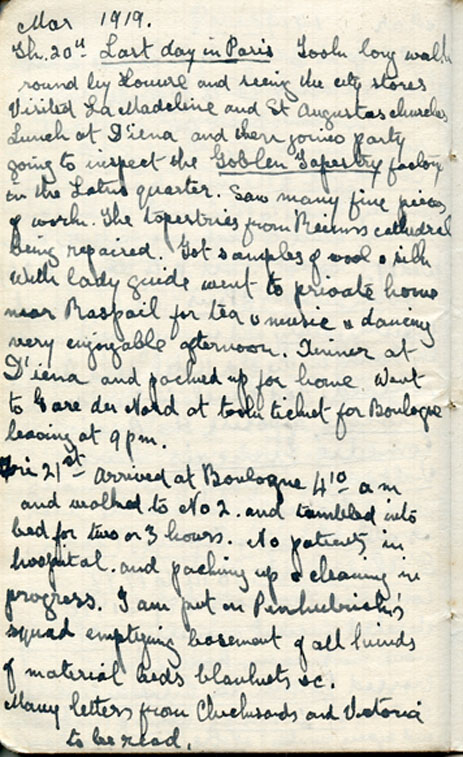 Mar 1919.
Th. 20th Last day in Paris Took long walk
round by Louvre and seeing the city stores
Visited La Madeleine and St Augustas churches
Lunch at D'iena and then joined party
going to inspect the Goblen Tapestry factory
in the Latin quarter. Saw many fine pieces
of work. The tapestries from Reims cathedral
being repaired. Got samples of wool & silk
With lady guide went to private home
near Raspail for tea & music & dancing
very enjoyable afternoon. Dinner at
D'iena and packed up for home. Went
to Gare du Nord at took ticket for Boulogne
leaving at 9 pm.
Fri 21st Arrived at Boulogne 4.10 a m
and walked to No 2. and tumbled into
bed for two or 3 hours. No patients in
hospital. and packing up & cleaning in
progress. I am put on
squad emptying basement of all kinds
of material beds blankets &c.
Many letters from and Victoria
to be read.